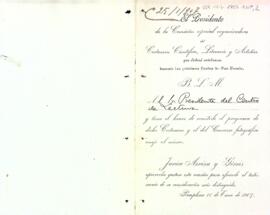 25/1/907
El Presidente
de la Comisión especial organizadora
del
Certamen Científico, Literario y Artístico
que deberá celebrarse
durante las próximas fiestas de San Fermín,
B. L. M.
al Sr. Presidente del Centro
de Lectura
y tiene el honor de remitirle el programa de
dicho Certamen y el del Concurso fotográfico
anejo al mismo.
Javier Arvizu y Górriz
aprovecha gustoso esta ocasión para ofrecerle el testi-
monio de su consideración más distinguida.
Pamplona 10 de Enero de 1907.